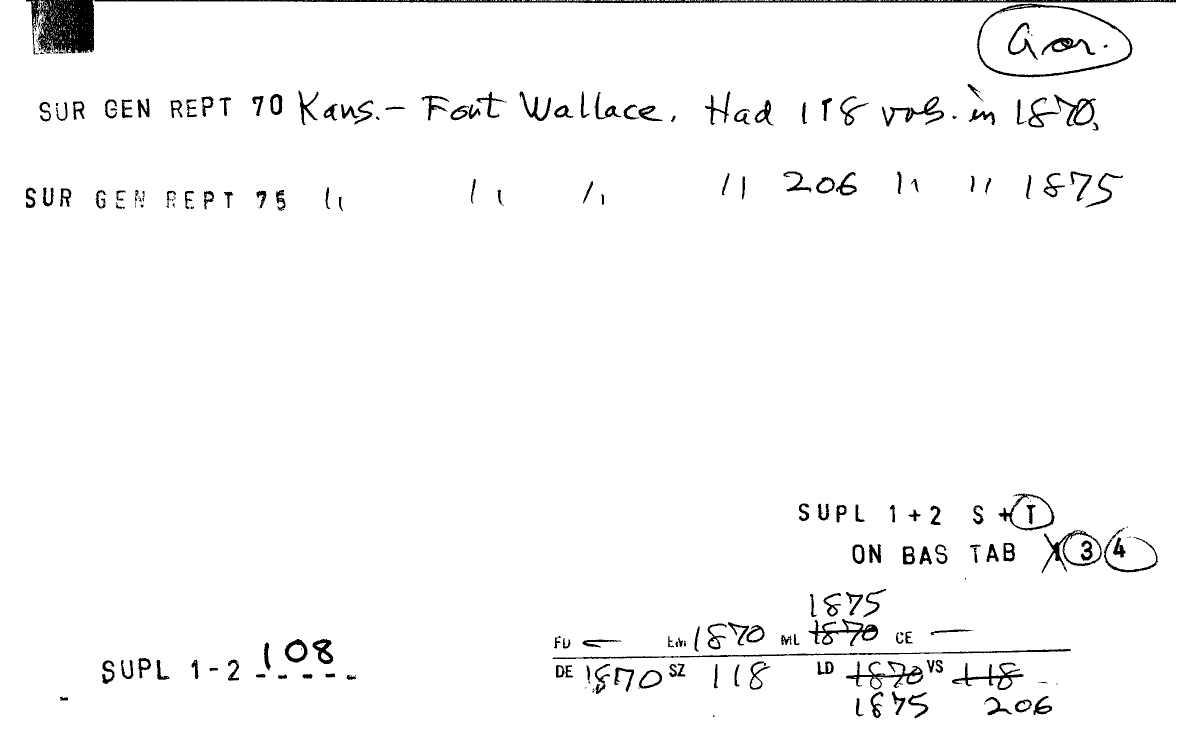 Gov.
SUR GEN REPT 70 Kans. - Fort Wallace. Had 118 vols. in 1870.
SUR GEN REPT 75 " " " " 206 " " 1875
SUPL 1+2 S+T
ON BAS TAB 1 3 4
1875
FD — Em 1870 ML 1870 CE —
SUPL 1-2 108
DE 1870 SZ 118 LD 1870 VS 118
1875 206